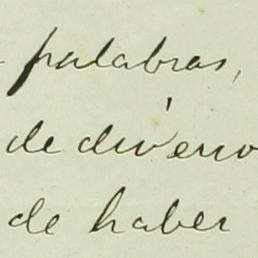 palabras,
de diverso
de haber